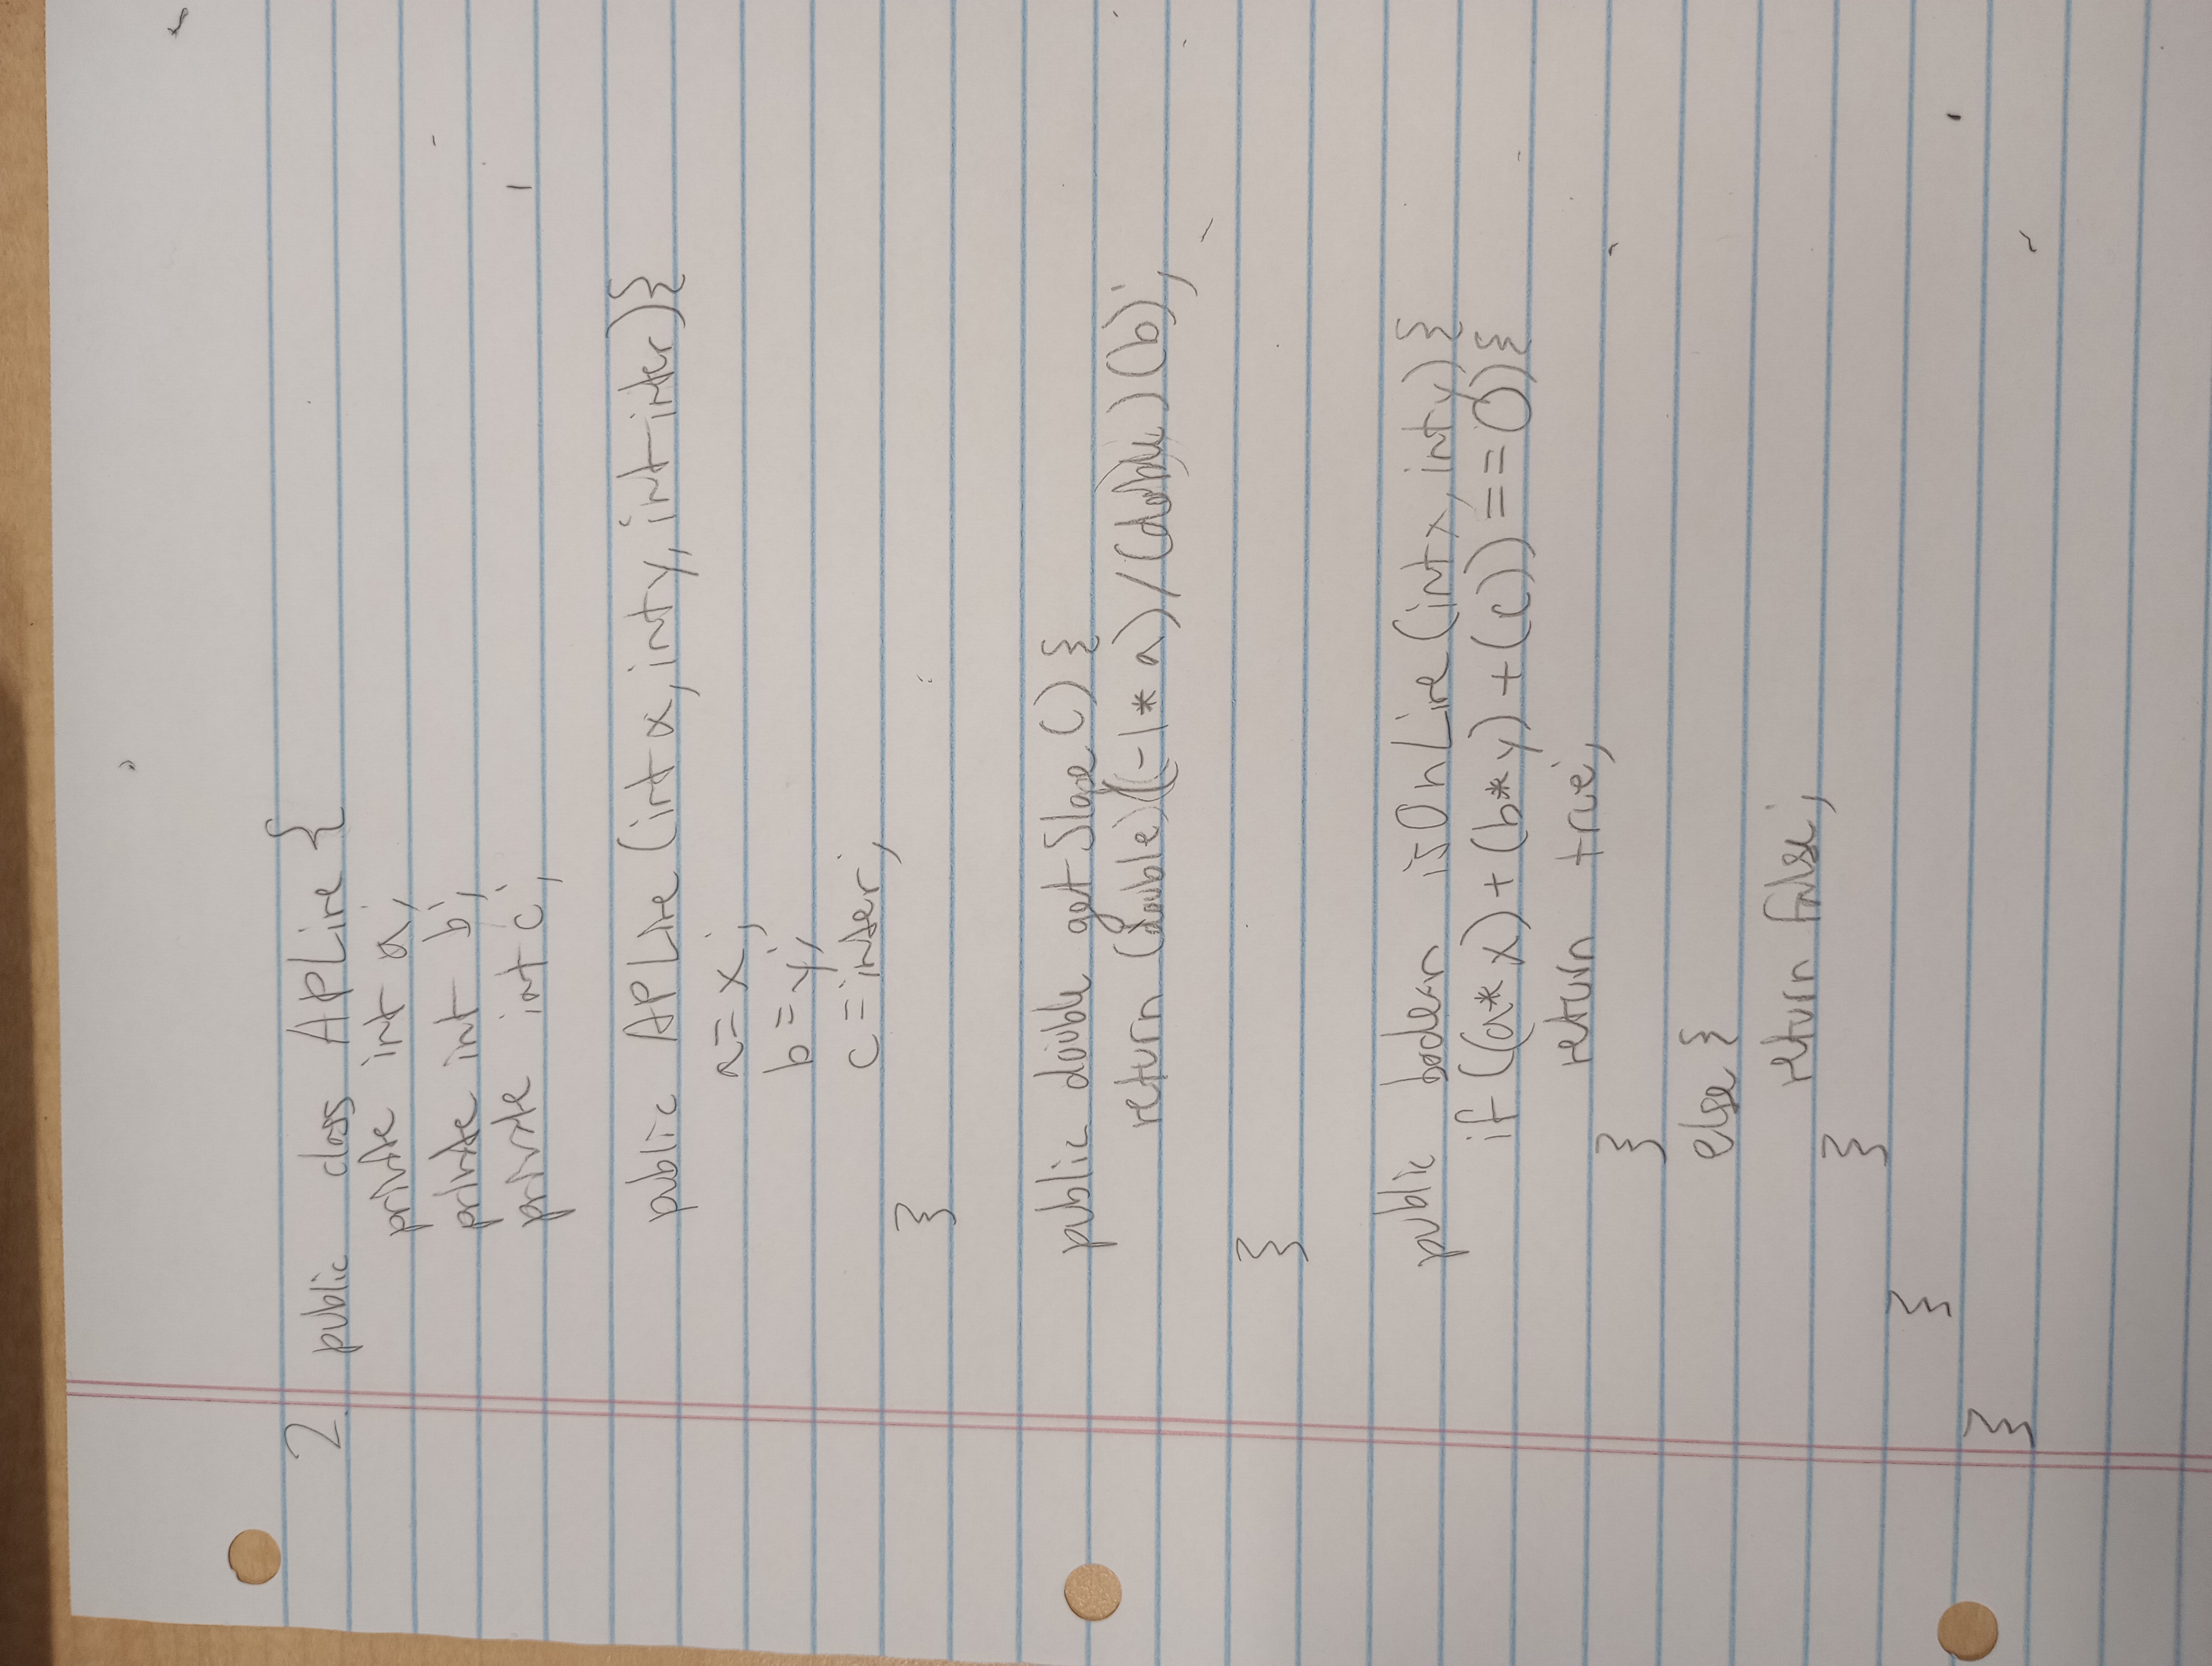 2. public class APLine {
private int a;
private int b;
private int c;
public APLine (int x, int y, int inter){
a = x;
b = y;
c = inter;
}
public double getSlope () {
return (double)((-1 * a) / (double) (b);
}
public boolean isOnLine (int x, int y) {
if ((a* x) + (b* y) + (c)) == 0) {
return true;
}
else {
return false;
}
}
}